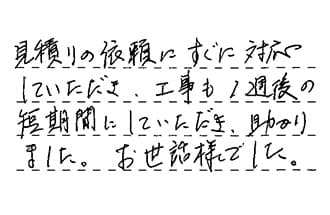 見積りの依頼にすぐに対応
していただき、工事も1週後の
短期間にしていただき、助かり
ました。お世話様でした。